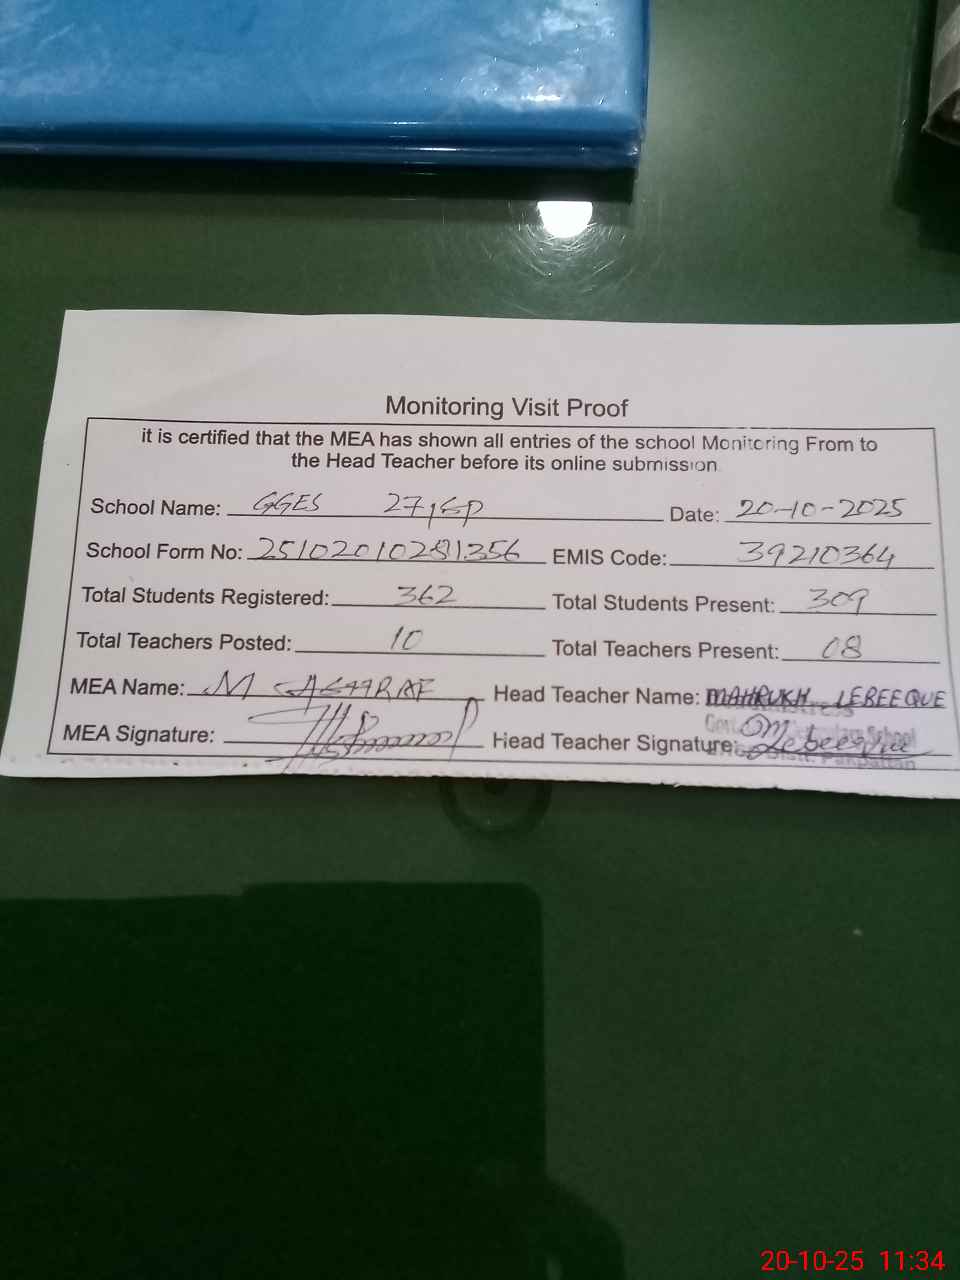 Monitoring Visit Proof
it is certified that the MEA has shown all entries of the school Monitoring From to
the Head Teacher before its online submission.
School Name: GGES 27/SP Date: 20-10-2025
School Form No: 25102010281356 EMIS Code: 39210364
Total Students Registered: 362 Total Students Present: 309
Total Teachers Posted: 10 Total Teachers Present: 08
MEA Name: M ASHRAF Head Teacher Name: MAHRUKH LEBEEQUE
MEA Signature: Head Teacher Signature:
School
Distt. Pakpattan
20-10-25 11:34